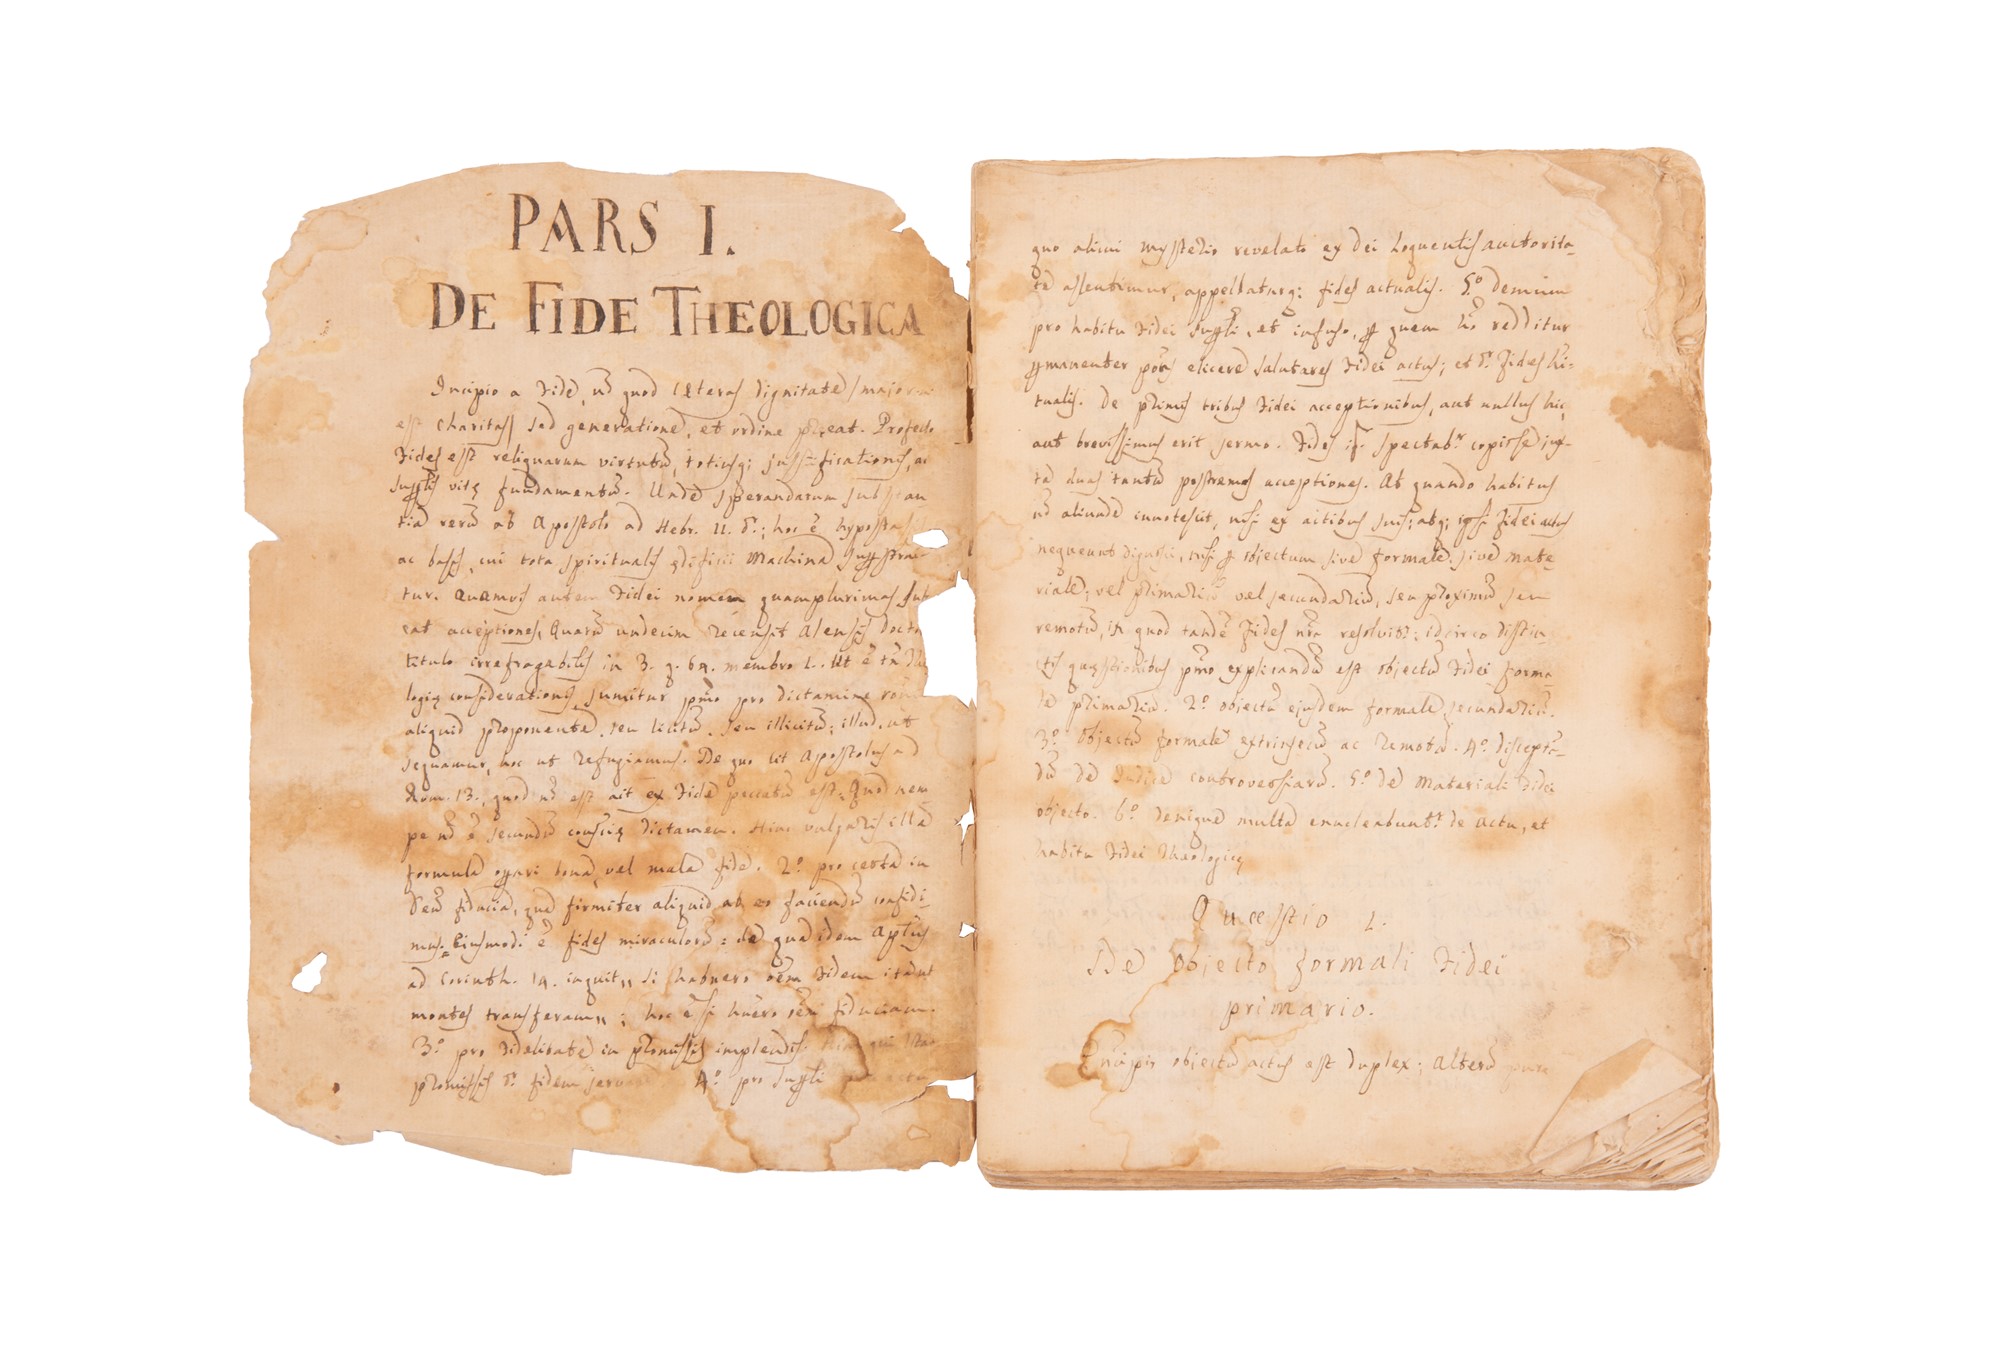 PARS I.
DE FIDE THEOLOGICA
Incipio a Fide, non quod cæteras dignitate/major
est charitas/ sed generatione, et ordine
Fides est reliquarum virtutū, totiusq; justificationis, ac
vitę fundamentū. Unde sperandarum substan
tia rerū ab Apostolo ad Hebr. 11. dr; hoc ē hypostasis
ac basis, cui tota spiritualis ędificii Machina
tur. Quamvis autem Fidei nomen quamplurimas
eat acceptiones, Quarū undecim recensit Alensis docto
titulo irrefragabilis in 3. q. 64. membro 1. Ut ē
logię considerationis sumitur pmo pro dictamine
aliquid proponente, seu licitū, seu illicitū; illud, ut
sequamur, hoc ut refugiamus. De quo sit Apostolus ad
Rom. 13., quod nō est ait ex Fide peccatū est: Quod nem
pe nō ē secundū conscię dictamen. Hinc vulgaris illa
formula bona, vel mala fide. 2.º pro certa in
Deū fiducia, qua firmiter aliquid ab eo faciendū confidi-
mus. Eiusmodi ē fides miraculorū: de qua idem Aplus
ad Corinth. 14. inquit,, si habuero oēm Fidem ita ut
montes transferam,,; hoc ē si huero oēm fiduciam.
3.º pro Fidelitate in promissis implendis. Hinc qui stat
promissis dr fidem 4.º pro
quo alicui mysterio revelato ex Dei Loquentis auctorita-
te assentimur, appellaturq; fides actualis. 5.º demum
pro habitu Fidei et infuso, quem hō redditur
elicere salutares Fidei actus; et dr Fides hi-
tualis. De primis tribus Fidei acceptionibus, aut nullus hic,
aut brevissimus erit sermo. Fides spectabr jux-
ta duas tantū postremas acceptiones. At quando habitus
nō aliunde innotescit, nisi ex actibus suis; atq; ipsi Fidei actus
nequeunt nisi objectum sive formale, sive mate-
riale; vel primariū vel secundariū, seu proximū seu
remotū, in quod tandē Fides nra resolvitr; idcirco distin-
ctis quęstionibus pmo explicandū est objectū Fidei forma-
le primariū. 2.º objectū ejusdem formale secundariū.
3.º Objectū formale extrinsecū ac remotū. 4.º discepta-
dū de Judice controversiarū. 5.º de Materiali Fidei
objecto. 6.º denique multa enucleabuntr de actu, et
habitu Fidei Theologicę
Quæstio 1.
De Objecto formali Fidei
primario.
objectū actus est duplex; Alterū